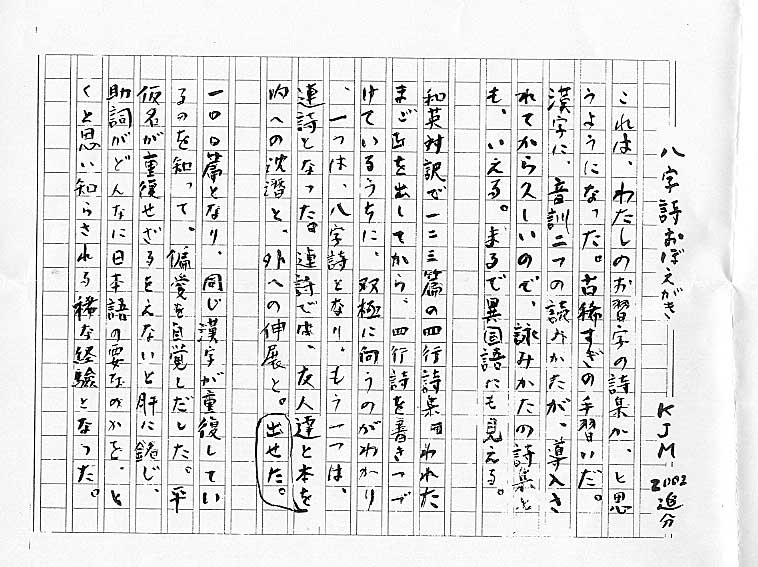 八字詩おぼえがき KJM 2002 追分
これは、わたしのお習字の詩集か、と思
うようになった。古稀すぎの手習いだ。
漢字に、音訓二つの読みかたが、導入さ
れてから久しいので、詠みかたの詩集と
も、いえる。まるで異国語にも見える。
和英対訳で一二三篇の四行詩集われた
まごを出してから、四行詩を書きつづ
けているうちに、双極に向うのがわかり
、一つは、八字詩となり、もう一つは、
連詩となった。連詩では、友人達と本を
内への沈潜と、外への伸展と。出せた。
一〇〇篇となり、同じ漢字が重復してい
るのを知って。偏愛を自覚しだした。平
仮名が重復せざるをえないと肝に銘じ、
助詞がどんなに日本語の要なのかを、と
くと思い知らされる稀な経験となった。